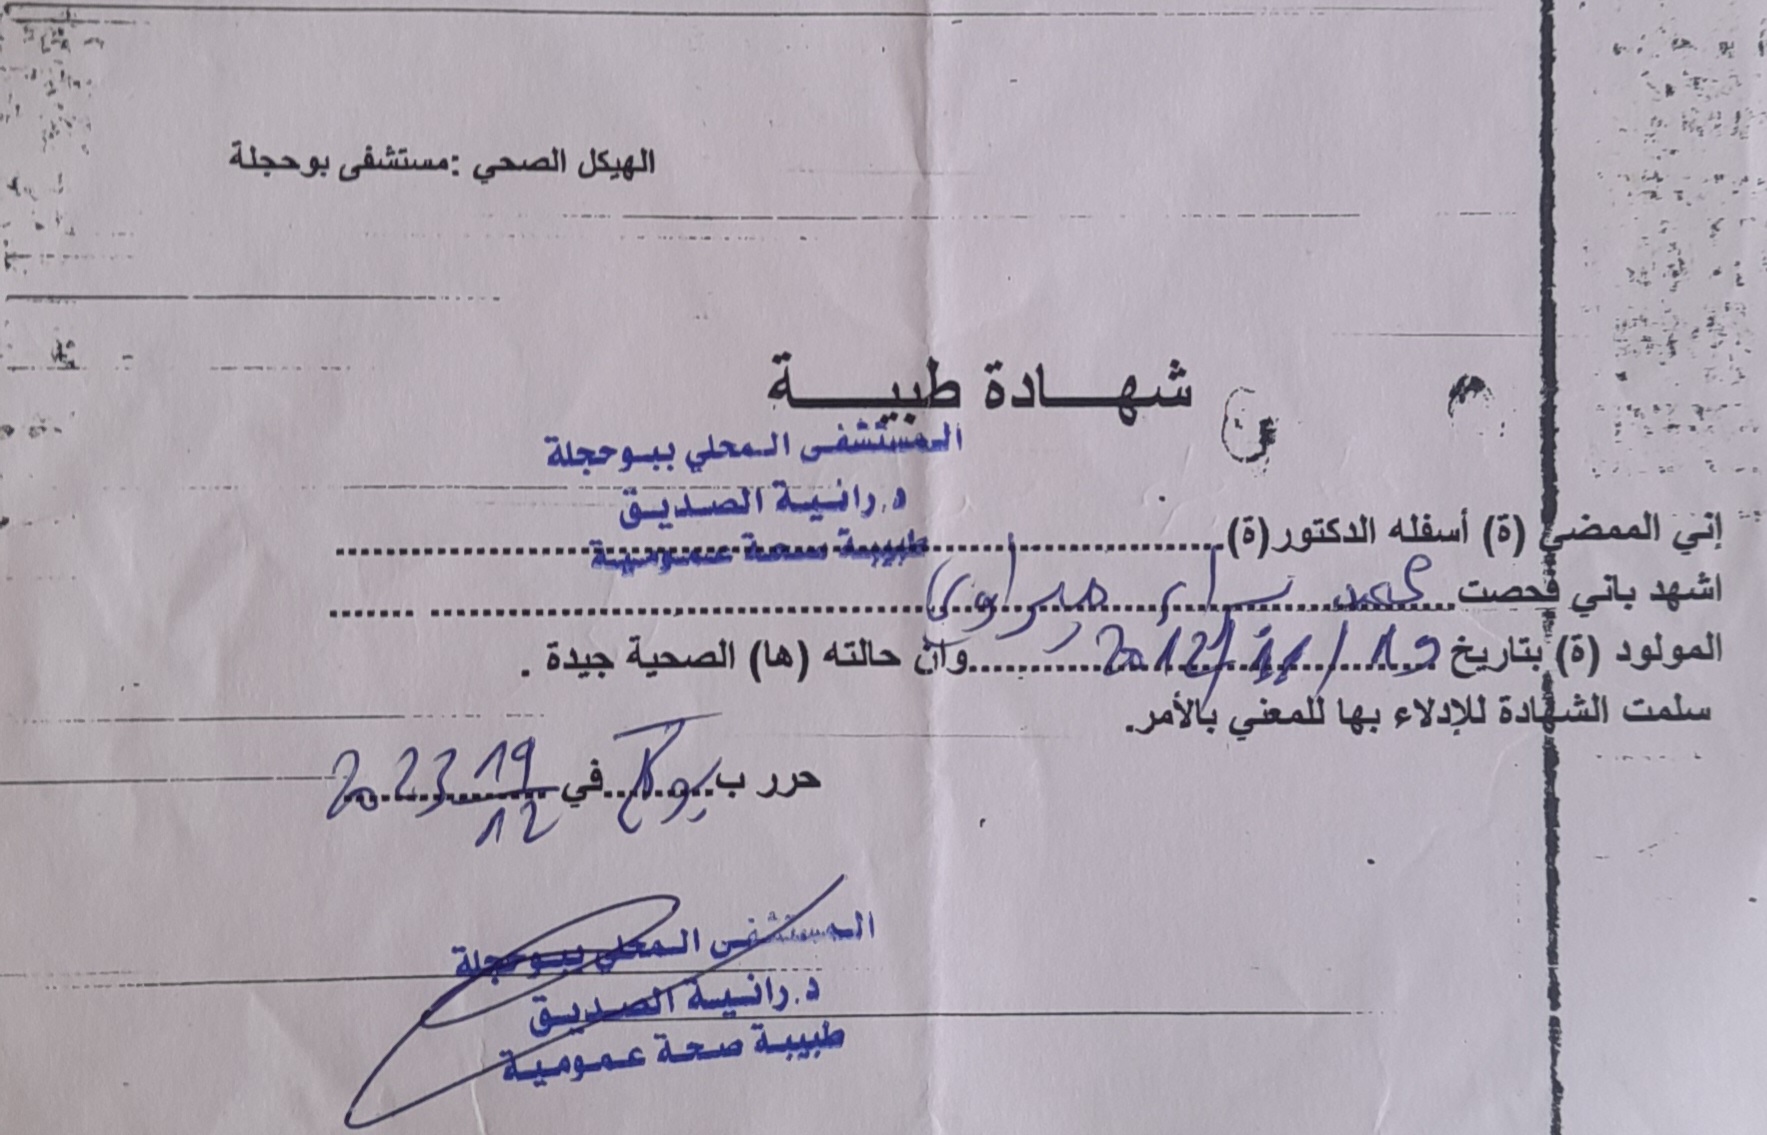 الهيكل الصحي :مستشفى بوحجلة
شهـــادة طبيـــــة
المستشفى المحلي ببوحجلة
د.رانية الصديق
طبيبة صحة عمومية
إني الممضي (ة) أسفله الدكتور(ة)
اشهد باني فحصت محمد
المولود (ة) بتاريخ 19/11/2012 وان حالته (ها) الصحية جيدة .
سلمت الشهادة للإدلاء بها للمعني بالأمر.
حرر ب في 19 2023
12
المستشفى المحلي ببوحجلة
د.رانية الصديق
طبيبة صحة عمومية